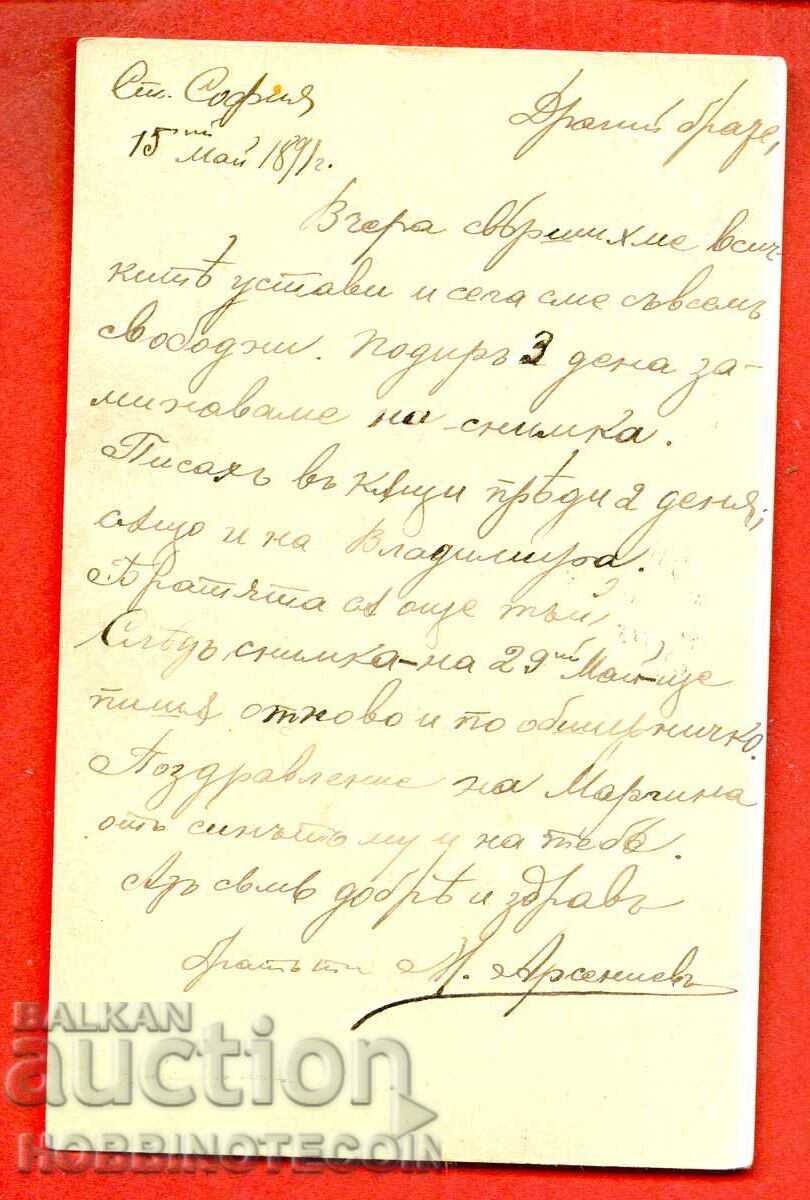 Ст. София
15ий Май 1891 г.
Драгий брате,
Вчера свършихме всич-
китѣ устави и сега сме съвсемъ
свободни. Подиръ 3 дена за-
минаваме на снимка.
Писахъ въ кѫщи прѣди 2 деня,
сѫщо и на Владимира.
Братята сѫ още тъй,
Слѣдъ снимка – на 29ий Май – ще
пишѫ отново и по обширничко.
Поздравление на Марчина
отъ синътъ му и на тебе.
Азъ съмь добрѣ и здравъ
братъ ти М. Арсениевъ
BALKAN
auction
HOBBINOTECOIN